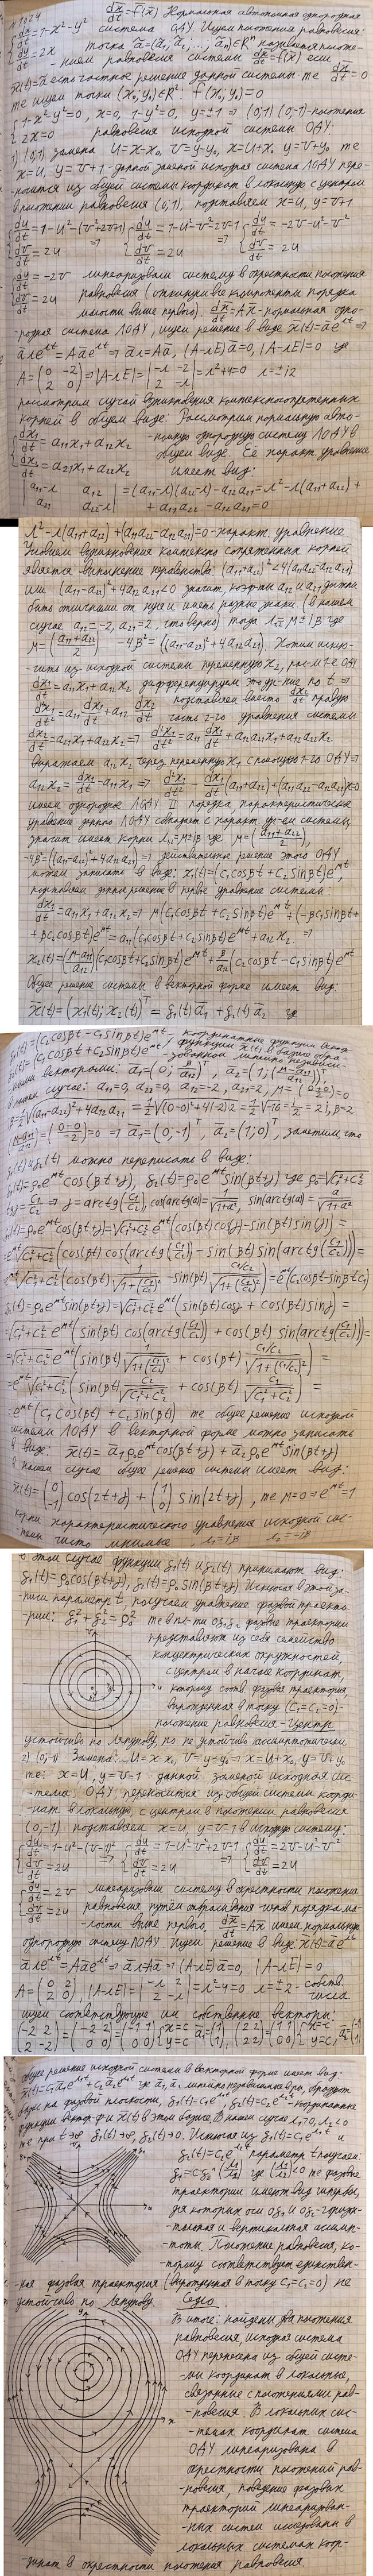 №1024 dx/dt = f(x) Нормальная автономная однородная
{dx/dt = 1-x²-y² система ОДУ. Ищем положения равновесия:
{dy/dt = 2x точка ā=(a₁, a₂, ..., aₙ)∈Rⁿ называется положе-
нием равновесия системы dx/dt = f(x) если
x̄(t)=ā есть частное решение данной системы те dx/dt = 0
те ищем точки (x₀,y₀)∈R²: f(x₀,y₀)=0
{1-x²-y²=0, x=0, 1-y²=0, y=±1 ⇒ (0;1) (0;-1)-положения
{2x=0 равновесия исходной системы ОДУ:
1) (0,1) замена U=x-x₀, V=y-y₀, x=U+x₀, y=V+y₀ те
x=U, y=V+1 - данной заменой исходная система ОДУ пере-
носится из общей системы координат в локальную с центром
в положении равновесия (0,1), подставляем x=U, y=V+1
{du/dt = 1-U²-(V²+2V+1) ⇒ {du/dt = 1-U²-V²-2V-1 ⇒ {du/dt = -2V-U²-V²
{dv/dt = 2U {dv/dt = 2U {dv/dt = 2U
{du/dt = -2V линеаризовали систему в окрестности положения
{dv/dt = 2U равновесия (откинули все компоненты порядка
малости выше первого). dx/dt = Ax - нормальная одно-
родная система ЛОДУ, ищем решение в виде x(t)=āe^λt ⇒
āλe^λt = Aāe^λt ⇒ āλ=Aā, (A-λE)ā=0, |A-λE|=0 где
A=(0 -2; 2 0) ⇒ |A-λE| = |-λ -2; 2 -λ| = λ²+4=0 λ=±i2
рассмотрим случай возникновения комплексносопряженных
корней в общем виде: Рассмотрим нормальную авто-
{dx₁/dt = a₁₁x₁+a₁₂x₂ -номную однородную систему ЛОДУ в
{dx₂/dt = a₂₁x₁+a₂₂x₂ общем виде. Ее характ. уравнение
имеет вид:
|a₁₁-λ a₁₂; a₂₁ a₂₂-λ| = (a₁₁-λ)(a₂₂-λ)-a₁₂a₂₁ = λ²-λ(a₁₁+a₂₂)+
+a₁₁a₂₂-a₁₂a₂₁=0
λ²-λ(a₁₁+a₂₂)+(a₁₁a₂₂-a₁₂a₂₁)=0 - характ. уравнение
Условием возникновения комплексно сопряженных корней
является выполнение неравенства: (a₁₁+a₂₂)²<4(a₁₁a₂₂-a₁₂a₂₁)
или (a₁₁-a₂₂)²+4a₁₂a₂₁<0 значит, коэф-ты a₁₂ и a₂₁ должны
быть отличными от нуля и иметь разные знаки (в нашем
случае a₁₂=-2, a₂₁=2, что верно) тогда λ₁,₂=μ±iβ где
μ=(a₁₁+a₂₂)/2 -4β²=((a₁₁-a₂₂)²+4a₁₂a₂₁) Хотим исклю-
-чить из исходной системы переменную x₂, рас-м 1-е ОДУ
dx₁/dt = a₁₁x₁+a₁₂x₂ дифференцируем это ур-ние по t ⇒
d²x₁/dt² = a₁₁dx₁/dt + a₁₂dx₂/dt подставляем вместо dx₂/dt правую
часть 2-го уравнения системы
dx₂/dt = a₂₁x₁+a₂₂x₂ ⇒ d²x₁/dt² = a₁₁dx₁/dt + a₁₂a₂₁x₁+a₁₂a₂₂x₂
Выражаем a₁₂x₂ через переменную x₁ с помощью 1-го ОДУ ⇒
a₁₂x₂ = dx₁/dt - a₁₁x₁ ⇒ d²x₁/dt² - dx₁/dt(a₁₁+a₂₂)+(a₁₁a₂₂-a₁₂a₂₁)x₁=0
имеем однородное ЛОДУ II порядка, характеристическое
уравнение данного ЛОДУ совпадает с характ. ур-ем системы,
значит имеет корни λ₁,₂=μ±iβ где μ=(a₁₁+a₂₂)/2,
-4β²=((a₁₁-a₂₂)²+4a₁₂a₂₁) ⇒ действительное решение этого ОДУ
можем записать в виде: x₁(t)=(C₁cosβt+C₂sinβt)e^μt,
подставляем данное решение в первое уравнение системы:
dx₁/dt = a₁₁x₁+a₁₂x₂ ⇒ μ(C₁cosβt+C₂sinβt)e^μt+(-βC₁sinβt+
+βC₂cosβt)e^μt = a₁₁(C₁cosβt+C₂sinβt)e^μt+a₁₂x₂ ⇒
x₂(t)=((μ-a₁₁)/a₁₂)(C₁cosβt+C₂sinβt)e^μt+β/a₁₂(C₂cosβt-C₁sinβt)e^μt
Общее решение системы в векторной форме имеет вид:
x̄(t)=(x₁(t);x₂(t))ᵀ=ξ₁(t)ā₁+ξ₂(t)ā₂ где
ξ₁(t)=(C₂cosβt-C₁sinβt)e^μt - координатные функции
ξ₂(t)=(C₁cosβt+C₂sinβt)e^μt функции x̄(t) в базисе обра-
зованном линейно независи-
мыми векторами: ā₁=(0; β/a₁₂)ᵀ, ā₂=(1; (μ-a₁₁)/a₁₂)ᵀ
в нашем случае: a₁₁=0, a₂₂=0, a₁₂=-2, a₂₁=2, μ=(0+0)/2=0
β=½√((a₁₁-a₂₂)²+4a₁₂a₂₁)=½√((0-0)²+4(-2)2)=½√-16=½4i=2i, β=2
((μ-a₁₁)/a₁₂)=((0-0)/-2)=0 ⇒ ā₁=(0;-1)ᵀ, ā₂=(1;0)ᵀ, заметим что
ξ₁(t) и ξ₂(t) можно переписать в виде:
ξ₁(t)=ρ₀e^μt cos(βt+γ), ξ₂(t)=ρ₀e^μt sin(βt+γ) где ρ₀=√(C₁²+C₂²)
tgγ=C₁/C₂ ⇒ γ=arctg(C₁/C₂), cos(arctg(a))=1/√(1+a²), sin(arctg(a))=a/√(1+a²)
ξ₁(t)=ρ₀e^μt cos(βt+γ)=√(C₁²+C₂²)e^μt(cos(βt)cosγ-sin(βt)sinγ)=
=e^μt√(C₁²+C₂²)(cos(βt)cos(arctg(C₁/C₂))-sin(βt)sin(arctg(C₁/C₂)))=
=e^μt√(C₁²+C₂²)(cos(βt)1/√(1+(C₁/C₂)²)-sin(βt)(C₁/C₂)/√(1+(C₁/C₂)²))=e^μt(C₂cosβt-sinβtC₁)
ξ₂(t)=ρ₀e^μt sin(βt+γ)=√(C₁²+C₂²)e^μt(sin(βt)cosγ+cos(βt)sinγ)=
=√(C₁²+C₂²)e^μt(sin(βt)cos(arctg(C₁/C₂))+cos(βt)sin(arctg(C₁/C₂)))=
=√(C₁²+C₂²)e^μt(sin(βt)1/√(1+(C₁/C₂)²)+cos(βt)(C₁/C₂)/√(1+(C₁/C₂)²))=
=e^μt√(C₁²+C₂²)(sin(βt)C₂/√(C₁²+C₂²)+cos(βt)C₁/√(C₁²+C₂²))=
=e^μt(C₁cos(βt)+C₂sin(βt)) те общее решение исходной
системы ЛОДУ в векторной форме можно записать
в виде: x̄(t)=ā₁ρ₀e^μt cos(βt+γ)+ā₂ρ₀e^μt sin(βt+γ)
в нашем случае общее решение системы имеет вид:
x̄(t)=(0; -1)cos(2t+γ)+(1; 0)sin(2t+γ), те μ=0 ⇒ e^μt=1
корни характеристического уравнения исходной сис-
темы чисто мнимые, λ₁=iβ λ₂=-iβ
В этом случае функции ξ₁(t) и ξ₂(t) принимают вид:
ξ₁(t)=ρ₀cos(βt+γ), ξ₂(t)=ρ₀sin(βt+γ) Исключая в этой за-
писи параметр t, получаем уравнение фазовой траекто-
рии: ξ₁²+ξ₂²=ρ₀² те в пл-ти Oξ₁ξ₂ фазовые траектории
представляют из себя семейство
концентрических окружностей,
с центром в начале координат,
которому соотв. фазовая траектория,
вырожденная в точку (C₁=C₂=0)-
положение равновесия - Центр
устойчиво по Ляпунову, но не устойчиво ассимптотически
2) (0,-1) Замена: U=x-x₀, V=y-y₀ ⇒ x=U+x₀, y=V+y₀
те: x=U, y=V-1 данной заменой исходная сис-
-тема ОДУ переносится из общей системы коорди-
нат в локальную, с центром в положении равновесия
(0,-1) подставляем x=U, y=V-1 в исходную систему:
{du/dt = 1-U²-(V-1)² ⇒ {du/dt = 1-U²-V²+2V-1 ⇒ {du/dt = 2V-U²-V²
{dv/dt = 2U {dv/dt = 2U {dv/dt = 2U
{du/dt = 2V линеаризовали систему в окрестности положения
{dv/dt = 2U равновесия путём отбрасывания членов порядка ма-
-лости выше первого, dx/dt = Ax имеем нормальную
однородную систему ЛОДУ Ищем решение в виде: x̄(t)=āe^λt
āλe^λt=Aāe^λt ⇒ āλ=Aā ⇒ (A-λE)ā=0, |A-λE|=0
A=(0 2; 2 0), |A-λE|=|-λ 2; 2 -λ|=λ²-4=0 λ=±2 - собств.
числа
ищем соответствующие им собственные векторы:
(-2 2; 2 -2)=(-2 2; 0 0)=(-1 1; 0 0){x=c {y=c ā₁=(1; 1), (2 2; 2 2)=(1 1; 0 0){x=-c {y=c, ā₂=(-1; 1)
Общее решение исходной системы в векторной форме имеет вид:
x̄(t)=C₁ā₁e^λ₁t+C₂ā₂e^λ₂t где ā₁,ā₂ линейно независимые в-ры, образуют
базис на фазовой плоскости, ξ₁(t)=C₁e^λ₁t, ξ₂(t)=C₂e^λ₂t - координатные
функции вектор-ф-и x̄(t) в этом базисе. В нашем случае λ₁>0, λ₂<0
те при t→∞ ξ₁(t)→∞, ξ₂(t)→0. Исключая из ξ₁(t)=C₁e^λ₁t и
ξ₂(t)=C₂e^λ₂t параметр t получаем:
где (λ₁/λ₂)<0 те фазовые
траектории имеют вид гипербол,
для которых оси Oξ₁ и Oξ₂ - горизон-
тальная и вертикальная ассимп-
тоты. Положение равновесия, ко-
торому соответствует единствен-
-ная фазовая траектория (вырожденная в точку C₁=C₂=0) не
устойчиво по Ляпунову. Седло
В итоге: найдены два положения
равновесия, исходная система
ОДУ перенесена из общей систе-
-мы координат в локальные,
связанные с положениями рав-
-новесия. В локальных сис-
-темах координат система
ОДУ линеаризована в
окрестности положений рав-
-новесия, поведение фазовых
траекторий линеаризован-
-ных систем исследованы в
локальных системах коор-
-динат в окрестности положения равновесия.